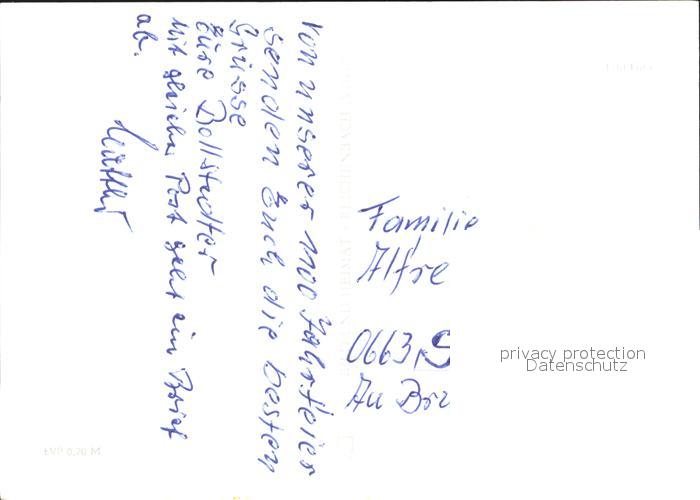 Von unserer 1100 Jahrfeier
senden Euch die besten
Grüsse
Eure Bollstedter
Mit gleicher Post geht ein Brief
ab.
Familie
Alfre
0663 S
Au Br
privacy protection
Datenschutz
EVP 0,20 M